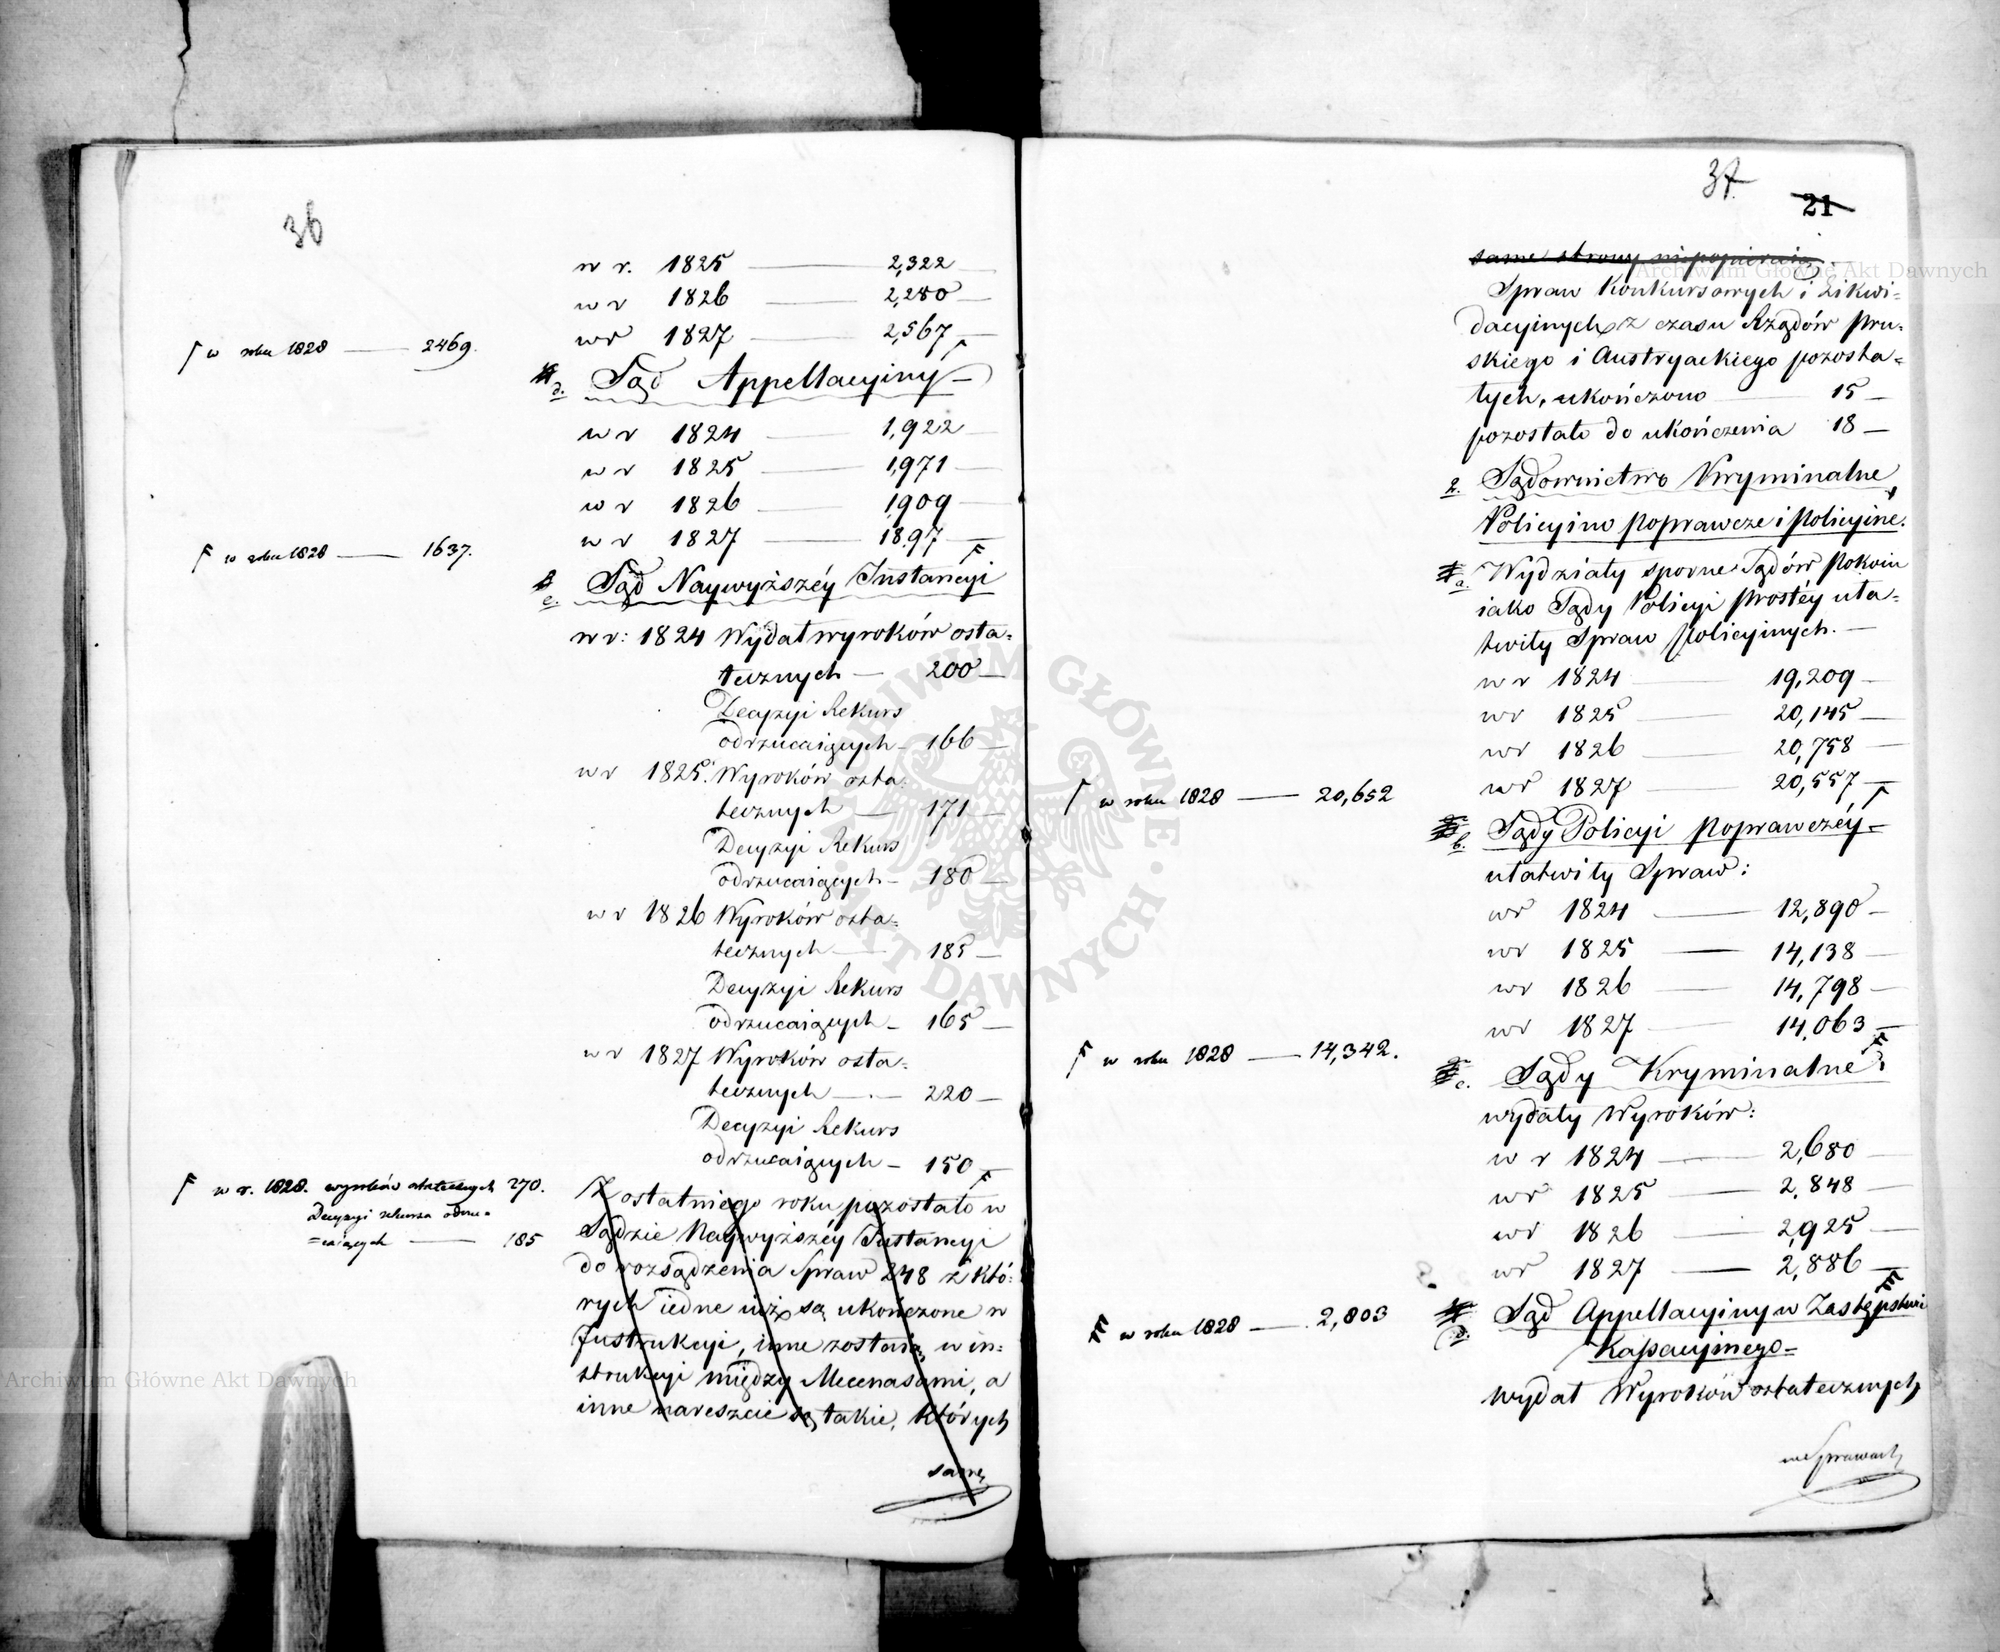 36
w r. 1825 — 2,322
w r 1826 — 2,280
w r 1827 — 2,567
w roku 1828 — 2469.
d. Sąd Appellacyiny
w r 1824 — 1,922
w r 1825 — 1,971
w r 1826 — 1,909
w r 1827 — 1,897
w roku 1828 — 1637.
e. Sąd Naywyższéy Instancyi
w r: 1824 Wydał wyroków osta=
tecznych — 200 —
Decyzyi Rekurs
odrzucaiących — 166 —
w r 1825 Wyroków osta=
tecznych — 171 —
Decyzyi Rekurs
odrzucaiących — 180 —
w r 1826 Wyroków osta=
tecznych — 185 —
Decyzyi Rekurs
odrzucaiących — 165 —
w r 1827 Wyroków osta=
tecznych — 220 —
Decyzyi Rekurs
odrzucaiących — 150 —
w r. 1828. wyroków ostatecznych 270.
Decyzyi rekursa odrzu=
=caiących — 185
Z ostatniego roku pozostało w
Sądzie Naywyższéy Instancyi
do rozsądzenia Spraw 248 z któ=
rych iedne iuż są ukończone w
Instrukcyi, inne zostaią w in=
strukcyi między Mecenasami, a
inne nareszcie są takie, których
same
37
21
same strony niepopieraią
Spraw Konkursowych i Likwi=
dacyinych z czasu Rządów Pru=
skiego i Austryackiego pozosta=
łych, ukończono — 15 —
pozostało do ukończenia 18 —
2. Sądownictwo Kryminalne,
Policyino poprawcze i policyine.
a. Wydziały sporne Sądów Pokoiu
iako Sądy Policyi prostéy uła=
twiły Spraw policyinych. —
w r 1824 — 19,209 —
w r 1825 — 20,145 —
w r 1826 — 20,758 —
w r 1827 — 20,557 —
w roku 1828 — 20,652
b. Sądy Policyi poprawczéy =
ułatwiły Spraw:
w r 1824 — 12,890 —
w r 1825 — 14,138 —
w r 1826 — 14,798 —
w r 1827 — 14,063 —
w roku 1828 — 14,342.
c. Sądy Kryminalne.
wydały Wyroków:
w r 1824 — 2,680 —
w r 1825 — 2,848 —
w r 1826 — 2,925 —
w r 1827 — 2,886 —
w roku 1828 — 2,803
d. Sąd Appellacyiny w Zastępstwie
Kassacyinego =
wydał Wyroków ostatecznych
w Sprawach
Archiwum Główne Akt Dawnych
Archiwum Główne Akt Dawnych
ARCHIWUM GŁÓWNE · AKT DAWNYCH ·